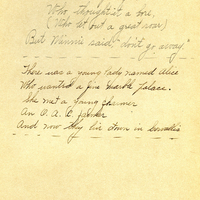 Who thought it a bore,
(Who let out a great roar)
But Minnie said, "don't go away."
There was a young lady named Alice
Who wanted a fine marble palace.
She met a young charmer
An O.A.C. farmer
And now they live down in Corvallis